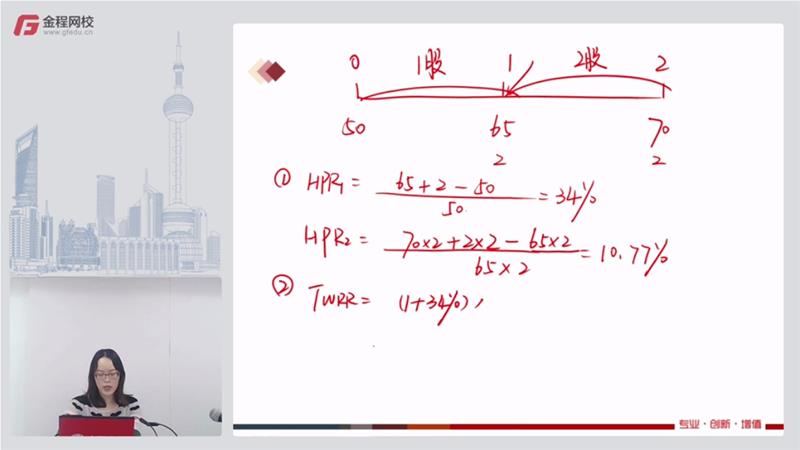 金程网校
www.gfedu.cn
0 1股 1 2股 2
50 65 70
2 2
① HPR₁ = (65+2-50)/50 = 34%
HPR₂ = (70×2+2×2-65×2)/(65×2) = 10.77%
② TWRR = (1+34%),
专业·创新·增值